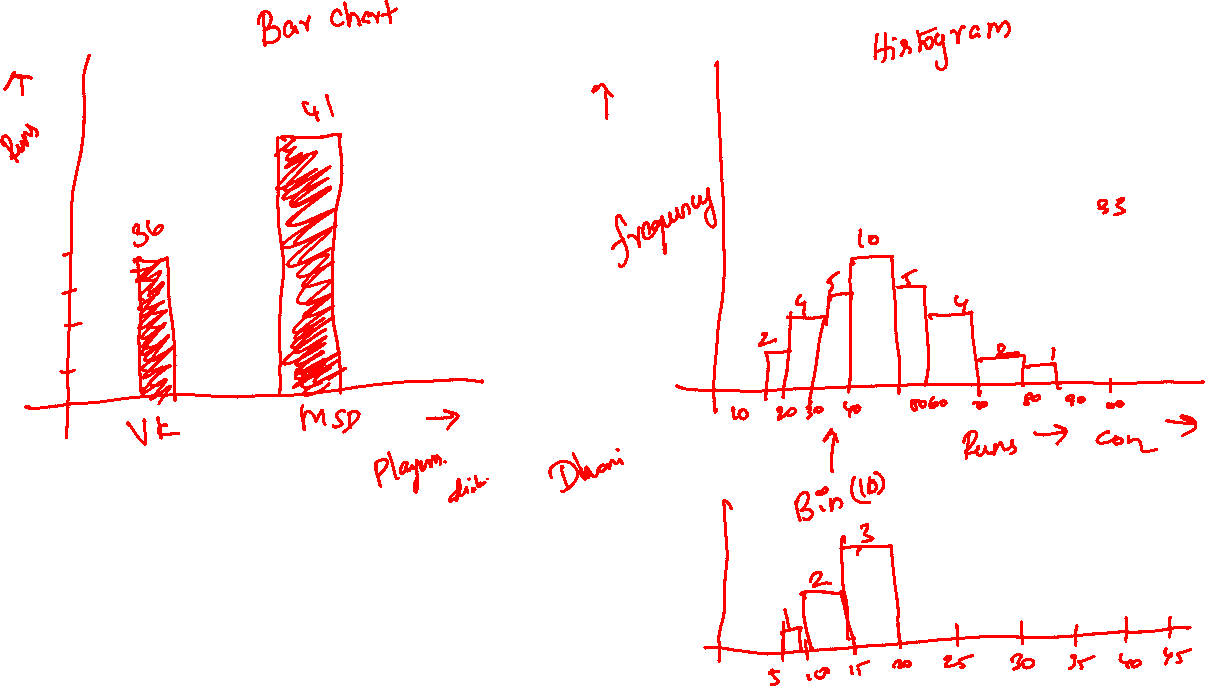 Bar chart
Runs
41
36
VK
MSD
Dhoni
Histogram
frequency
93
10
5
5
4
4
2
1
10 20 30 40 50 60 70 80 90
Runs
Con
Bin (10)
3
2
1
5 10 15 20 25 30 35 40 45